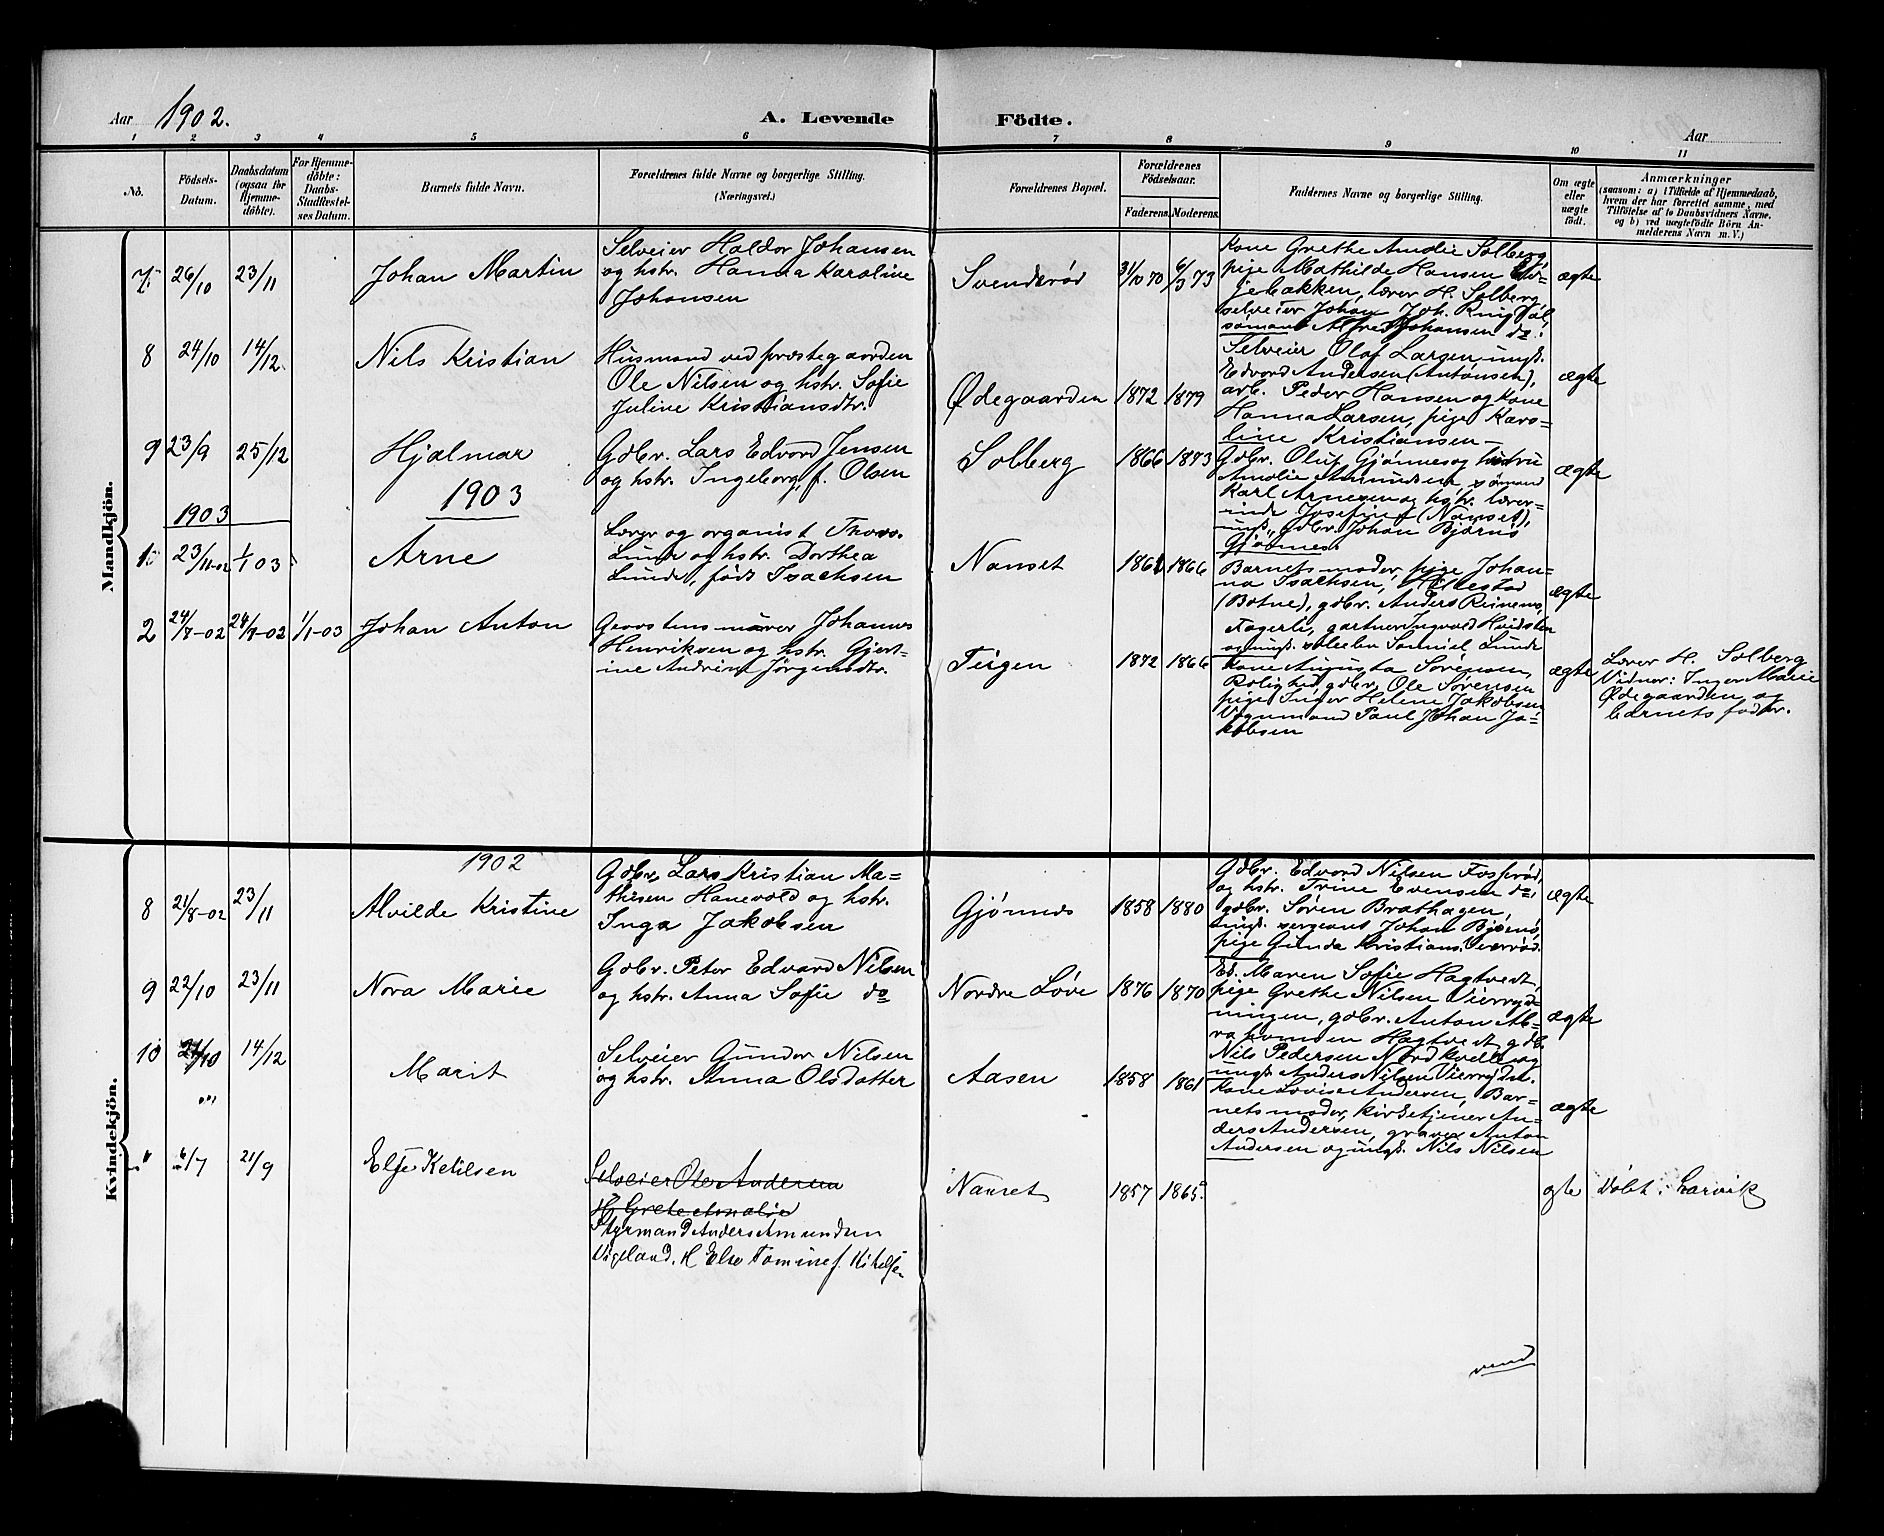 Aar 1902.
A. Levende Födte.
Aar
1 2 3 4 5 6 7 8 9 10 11
No.
Födsels-
Datum.
Daabsdatum
(ogsaa for
Hjemme-
döbte).
For Hjemme-
döbte:
Daabs-
Stadfæstel-
ses Datum.
Barnets fulde Navn.
Forældrenes fulde Navne og borgerlige Stilling.
(Næringsvei.)
Forældrenes Bopæl.
Forældrenes
Födselsaar.
Faderens. Moderens.
Faddernes Navne og borgerlige Stilling.
Om ægte
eller
uægte
födt.
Anmærkninger
(saasom: a) i Tilfælde af Hjemmedaab,
hvem der har forrettet samme, med
Tilföielse af to Daabsvidners Navne.
og b) ved uægtefödte Börn An-
melderens Navn m. V.)
Mandkjön.
7. 26/10 23/11 Johan Martin
Selveier Haldor Johansen
og hstr. Hanna Karoline
Johansen
Svenderød 31/10 70 6/3 73
Kone Grethe Amalie Solberg,
pige Mathilde Hansen
jebakken, lærer H. Solberg,
selveier Johan Joh. Ringdal,
sømand Alfred Johansen do.
ægte
8 24/10 14/12 Nils Kristian
Husmand ved præstegaarden
Ole Nilsen og hstr. Sofie
Juline Kristiansdtr.
Ødegaarden 1872 1879
Selveier Olaf Larsen ungk.
Edvard Andersen (Antonsen),
arb. Peder Hansen og kone
Hanna Larsen, pige Karo-
line Kristiansen
ægte
9 23/9 25/12 Hjalmar
Gdbr. Lars Edvard Jensen
og hstr. Ingeborg, f. Olsen
Solberg 1866 1873
Gdbr. Oluf Gjønnes og hustru
Amalie Amundsen, sømand
Karl Arnesen og hstr. lærer-
inde Josefine (Nanset),
ungk. gdbr. Johan Bjørnø
Gjønnes.
ægte
1903
1903
1. 23/11-02 1/1 03 Arne
Lærer og organist Thovs.
Lunde og hstr. Dorthea
Lunde, født Isachsen
Nanset 1861 1866
Barnets moder, pige Johan-
na Isachsen, Hillestad
(Botne), gdbr. Anders Reinens,
Fagerli, gartner Ingvald Hvidsten
og ungk. Samuel Lunde
ægte
2 24/7-02 24/7-02 1/1-03 Johan Anton
Graastensmurer Johannes
Henriksen og hstr. Gjert-
ine Andrine Jørgensdtr.
Teigen 1872 1866
Kone Augusta Sørensen
Rolighed, gdbr. Ole Sørensen
pige Inger Helene Jakobsen
Vognmand Paul Johan Ja-
kobsen
ægte
Lærer H. Solberg
Vidner: Inger Marie
Ødegaarden og
barnets fader.
Kvindekjön.
1902
8 21/8-02 23/11 Alvilde Kristine
Gdbr. Lars Kristian Ma-
thisen Hanevold og hstr.
Inga Jakobsen
Gjønnes 1858 1880
Gdbr. Edvard Nilsen Fosserød,
og hstr. Trine Evensen do,
gdbr. Søren Brathagen,
ungk. sergeant Johan Bjørnø,
pige Gunda Kristians.
ægte
9 22/10 23/11 Nora Marie
Gdbr. Peter Edvard Nilsen
og hstr. Anna Sofie do
Nordre Løve 1876 1870
Ek. Maren Sofie Hagtvedt,
pige Grethe Nilsen Vierryd-
ningen, gdbr. Anton Ab-
rahamsen Hagtvet, gdb.
Nils Pedersen Nordkvelle og
ungk. Anders Nilsen Vierrydn.
ægte
10 21/10 14/12 Marit
Selveier Gunder Nilsen
og hstr. Anna Olsdatter
Aasen 1858 1861
Kone Lovise Andersen, Bar-
nets moder, kirketjener An-
ders Andersen, graver Anton
Andersen og ungk. Nils Nilsen
ægte
" 6/7 21/9 Else Ketilsen
Selveier Ole Andersen
H Grete Amalie
Styrmand Anders Amundsen
Vigeland. H Else Tomine f. Kitelsen
Nanset 1857 1865
ægte Døbt i Larvik
vend